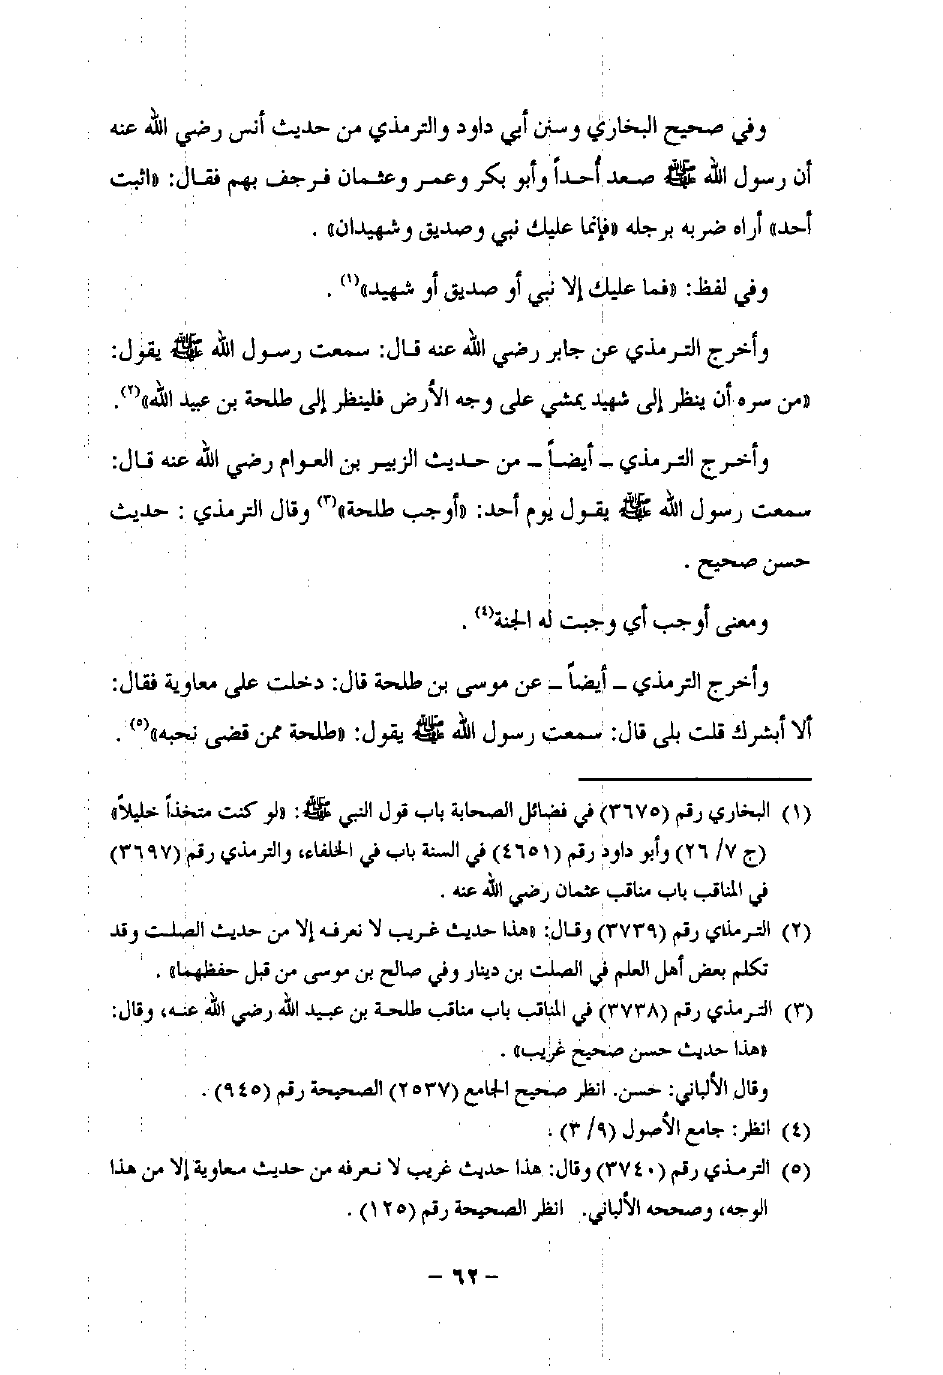 وفي صحيح البخاري وسنن أبي داود والترمذي من حديث أنس رضي الله عنه
أن رسول الله ﷺ صعد أحداً وأبو بكر وعمر وعثمان فرجف بهم فقال: «اثبت
أحد» أراه ضربه برجله «فإنما عليك نبي وصديق وشهيدان» .
وفي لفظ: «فما عليك إلا نبي أو صديق أو شهيد»(١) .
وأخرج الترمذي عن جابر رضي الله عنه قال: سمعت رسول الله ﷺ يقول:
«من سره أن ينظر إلى شهيد يمشي على وجه الأرض فلينظر إلى طلحة بن عبيد الله»(٢).
وأخرج الترمذي ـ أيضاً ـ من حديث الزبير بن العوام رضي الله عنه قال:
سمعت رسول الله ﷺ يقول يوم أحد: «أوجب طلحة»(٣) وقال الترمذي : حديث
حسن صحيح .
ومعنى أوجب أي وجبت له الجنة(٤) .
وأخرج الترمذي ـ أيضاً ـ عن موسى بن طلحة قال: دخلت على معاوية فقال:
ألا أبشرك قلت بلى قال: سمعت رسول الله ﷺ يقول: «طلحة ممن قضى نحبه»(٥) .
(١) البخاري رقم (٣٦٧٥) في فضائل الصحابة باب قول النبي ﷺ: «لو كنت متخذاً خليلاً»
(ج ٧/ ٢٦) وأبو داود رقم (٤٦٥١) في السنة باب في الخلفاء، والترمذي رقم (٣٦٩٧)
في المناقب باب مناقب عثمان رضي الله عنه .
(٢) الترمذي رقم (٣٧٣٩) وقال: «هذا حديث غريب لا نعرفه إلا من حديث الصلت وقد
تكلم بعض أهل العلم في الصلت بن دينار وفي صالح بن موسى من قبل حفظهما» .
(٣) الترمذي رقم (٣٧٣٨) في المناقب باب مناقب طلحة بن عبيد الله رضي الله عنه، وقال:
«هذا حديث حسن صحيح غريب» .
وقال الألباني: حسن. انظر صحيح الجامع (٢٥٣٧) الصحيحة رقم (٩٤٥) .
(٤) انظر: جامع الأصول (٩/ ٣) .
(٥) الترمذي رقم (٣٧٤٠) وقال: هذا حديث غريب لا نعرفه من حديث معاوية إلا من هذا
الوجه، وصححه الألباني. انظر الصحيحة رقم (١٢٥) .
– ٦٢ –